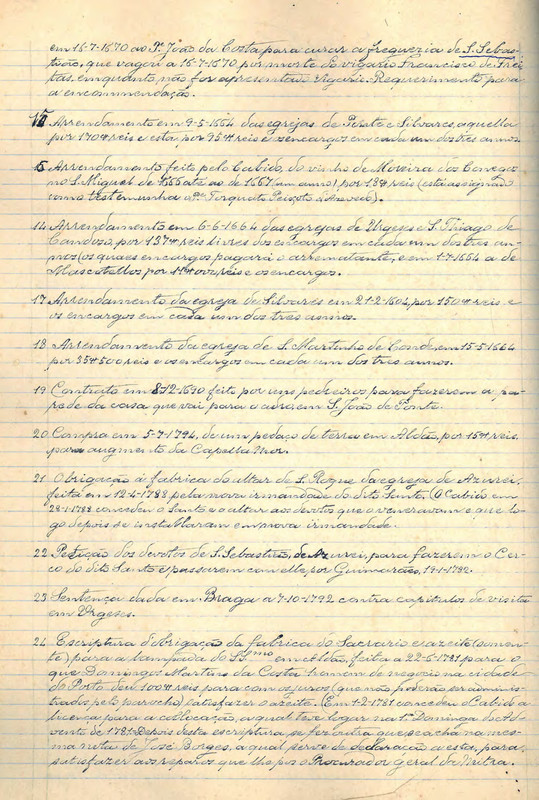 em 16-7-1670 ao Pe. João da Costa para curar a freguezia de S. Sebas-
tião, que vagou a 16-7-1670 por morte do vigario Francisco de Frei-
tas, emquanto não for apresentado vigario. Requerimento para
a encommendação.
Arrendamento em 9-5-1664 das egrejas de Pente e Silvares, aquella
por 170# reis e esta por 95# reis e os encargos em cada um dos tres annos.
Arrendamento feito pelo Cabido, do vinho de Moreira dos Conegos
no S. Miguel de 1666 até ao de 1667 (um anno) por 18# reis (está assignado
como testemunha o Pe. Torquato Peixoto d'Azevedo).
14 Arrendamento em 6-6-1664 das egrejas de Urgeses e S. Thiago de
Candoso, por 137# reis livres dos encargos em cada um dos tres an-
nos (os quaes encargos pagará o arrematante, e em 1-7-1664 a de
Mascotellos por reis e os encargos.
17 Arrendamento da egreja de Silvares em 21-2-1604, por 150# reis e
os encargos em cada um dos tres annos.
18 Arrendamento da egreja de S. Martinho de Conde, em 15-5-1664
por 35#500 reis e os encargos em cada um dos tres annos.
19 Contrato em 8-12-1690 feito por uns pedreiros para fazerem a pa-
rede da casa que vai para o adro em S. João de Ponte.
20 Compra em 5-7-1794, de um pedaço de terra em Abdão, por 15# reis,
para augmento da Capella Mor.
21 Obrigação á fabrica do altar de S. Roque da egreja de Azurei,
feita em 12-4-1788 pela nova irmandade do dito Santo. (O Cabido em
28-1-1788 concedeu o Santo e o altar aos devotos que o veneravam e que lo-
go depois se installaram em nova irmandade.
22 Petição dos devotos de S. Sebastião, de Azurei, para fazerem o Cer-
co do dito Santo e passarem com elle por Guimarães, 19-1-1782.
23 Sentença dada em Braga a 7-10-1792 contra capitulos de visita
em Urgeses.
24 Escriptura d'obrigação da fabrica do Sacrario e azeite (somen-
te) para a lampada do SSmo em Aldão, feita a 22-6-1781 para o
que Domingos Martins da Costa homem de negocio na cidade
do Porto deu 100# reis para com os juros (que não poderão ser adminis-
trados pelo parocho) satisfazer o azeite. Em 1-2-1781 concedeu o Cabido a
licença para a collocação, a qual teve logar na 1ª Dominga do Ad-
vento de 1781. Depois desta escriptura, se fez outra que se acha na mes-
ma nota de José Borges, a qual serve de declaração a esta, para
satisfazer aos reparos que lhe pôz o Procurador geral da Mitra.